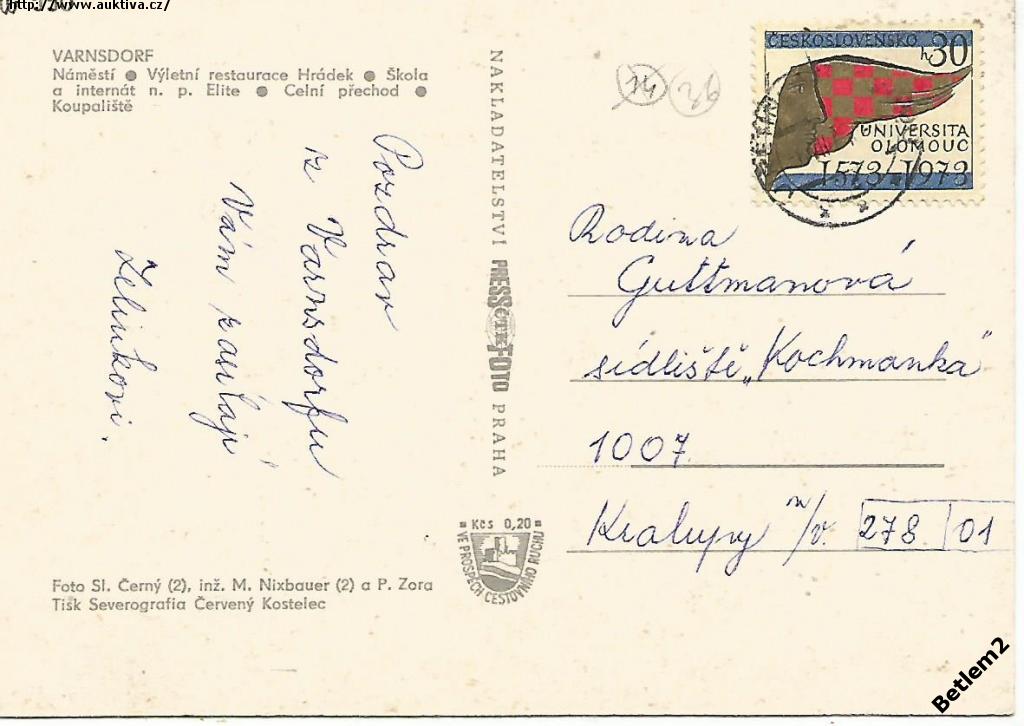 http://www.auktiva.cz/
VARNSDORF
Náměstí ● Výletní restaurace Hrádek ● Škola
a internát n. p. Elite ● Celní přechod ●
Koupaliště
Pozdrav
z Varnsdorfu
Vám zasílají
Zelinkovi.
Foto Sl. Černý (2), inž. M. Nixbauer (2) a P. Zora
Tisk Severografia Červený Kostelec
NAKLADATELSTVÍ PRESSFOTO PRAHA
ČTK
Kčs 0,20
VE PROSPĚCH CESTOVNÍHO RUCHU
14
36
ČESKOSLOVENSKO
h30
UNIVERSITA
OLOMOUC
1573-1973
Rodina
Guttmanová
sídliště „Kochmanka"
1007.
Kralupy n/V. 278 01
Betlem2